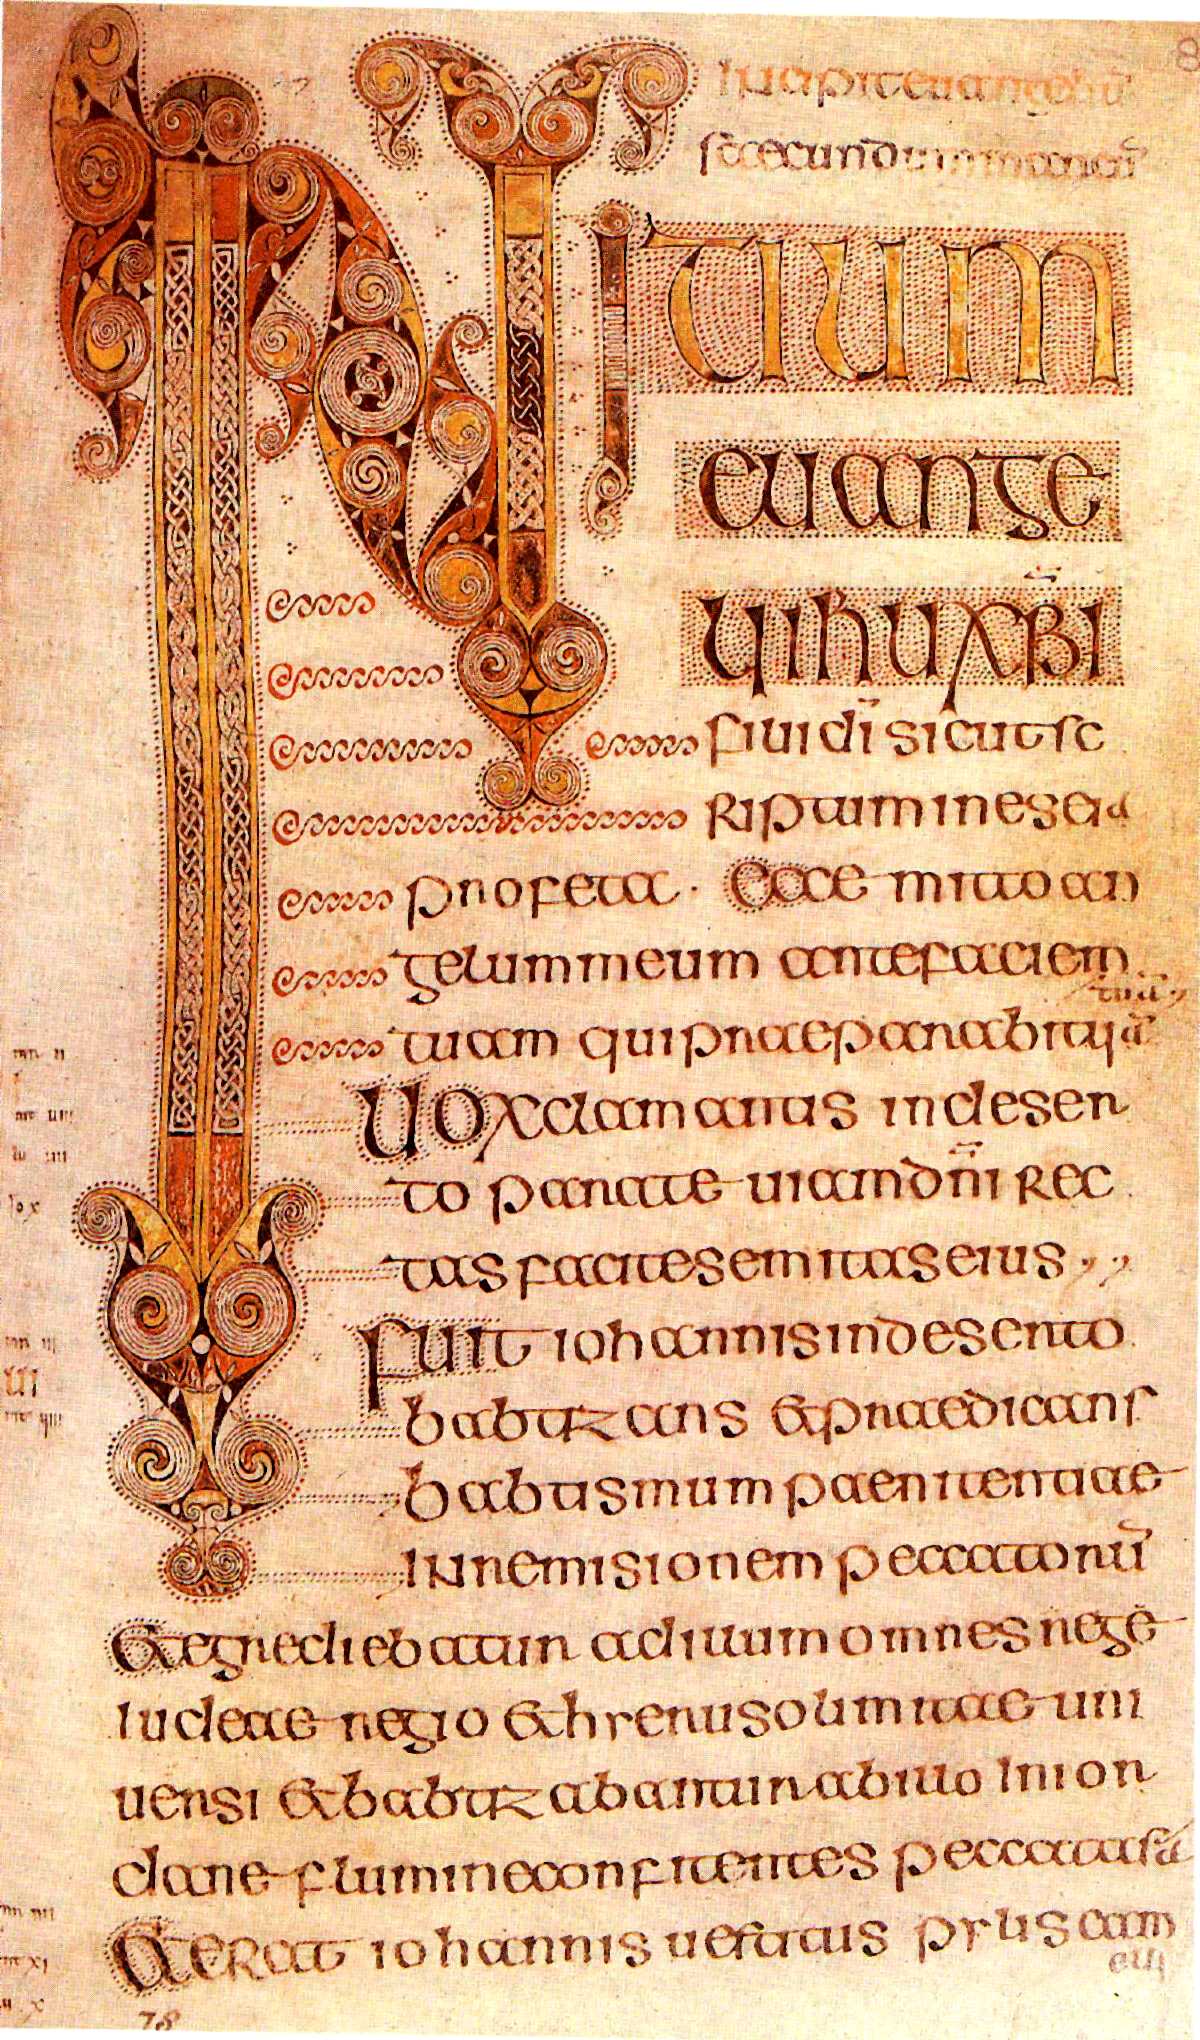 Incipit euangeliū
sēcundum marcū
INITIUM
EUANGE
LII IHU XP̄I
filii dī sicut sc
riptum in eseia
profeta · ecce mitto an
gelum meum ante faciem
tuam qui praeparabit uiā
tuā
Uox clamantis in deser
to parate uiam dn̄i rec
tas facite semitas eius
Fuit iohannis in deserto
babtizans & praedicans
babtismum paenitentiae
in remisionem peccatorū
& egrediebatur ad illum omnes rege
iudeae regio & hyrusolimitae uni
uersi & babtizabantur ab illo in ior
dane flumine confitentes peccata sā
& erat iohannis uestitus pylis cam
elli
78